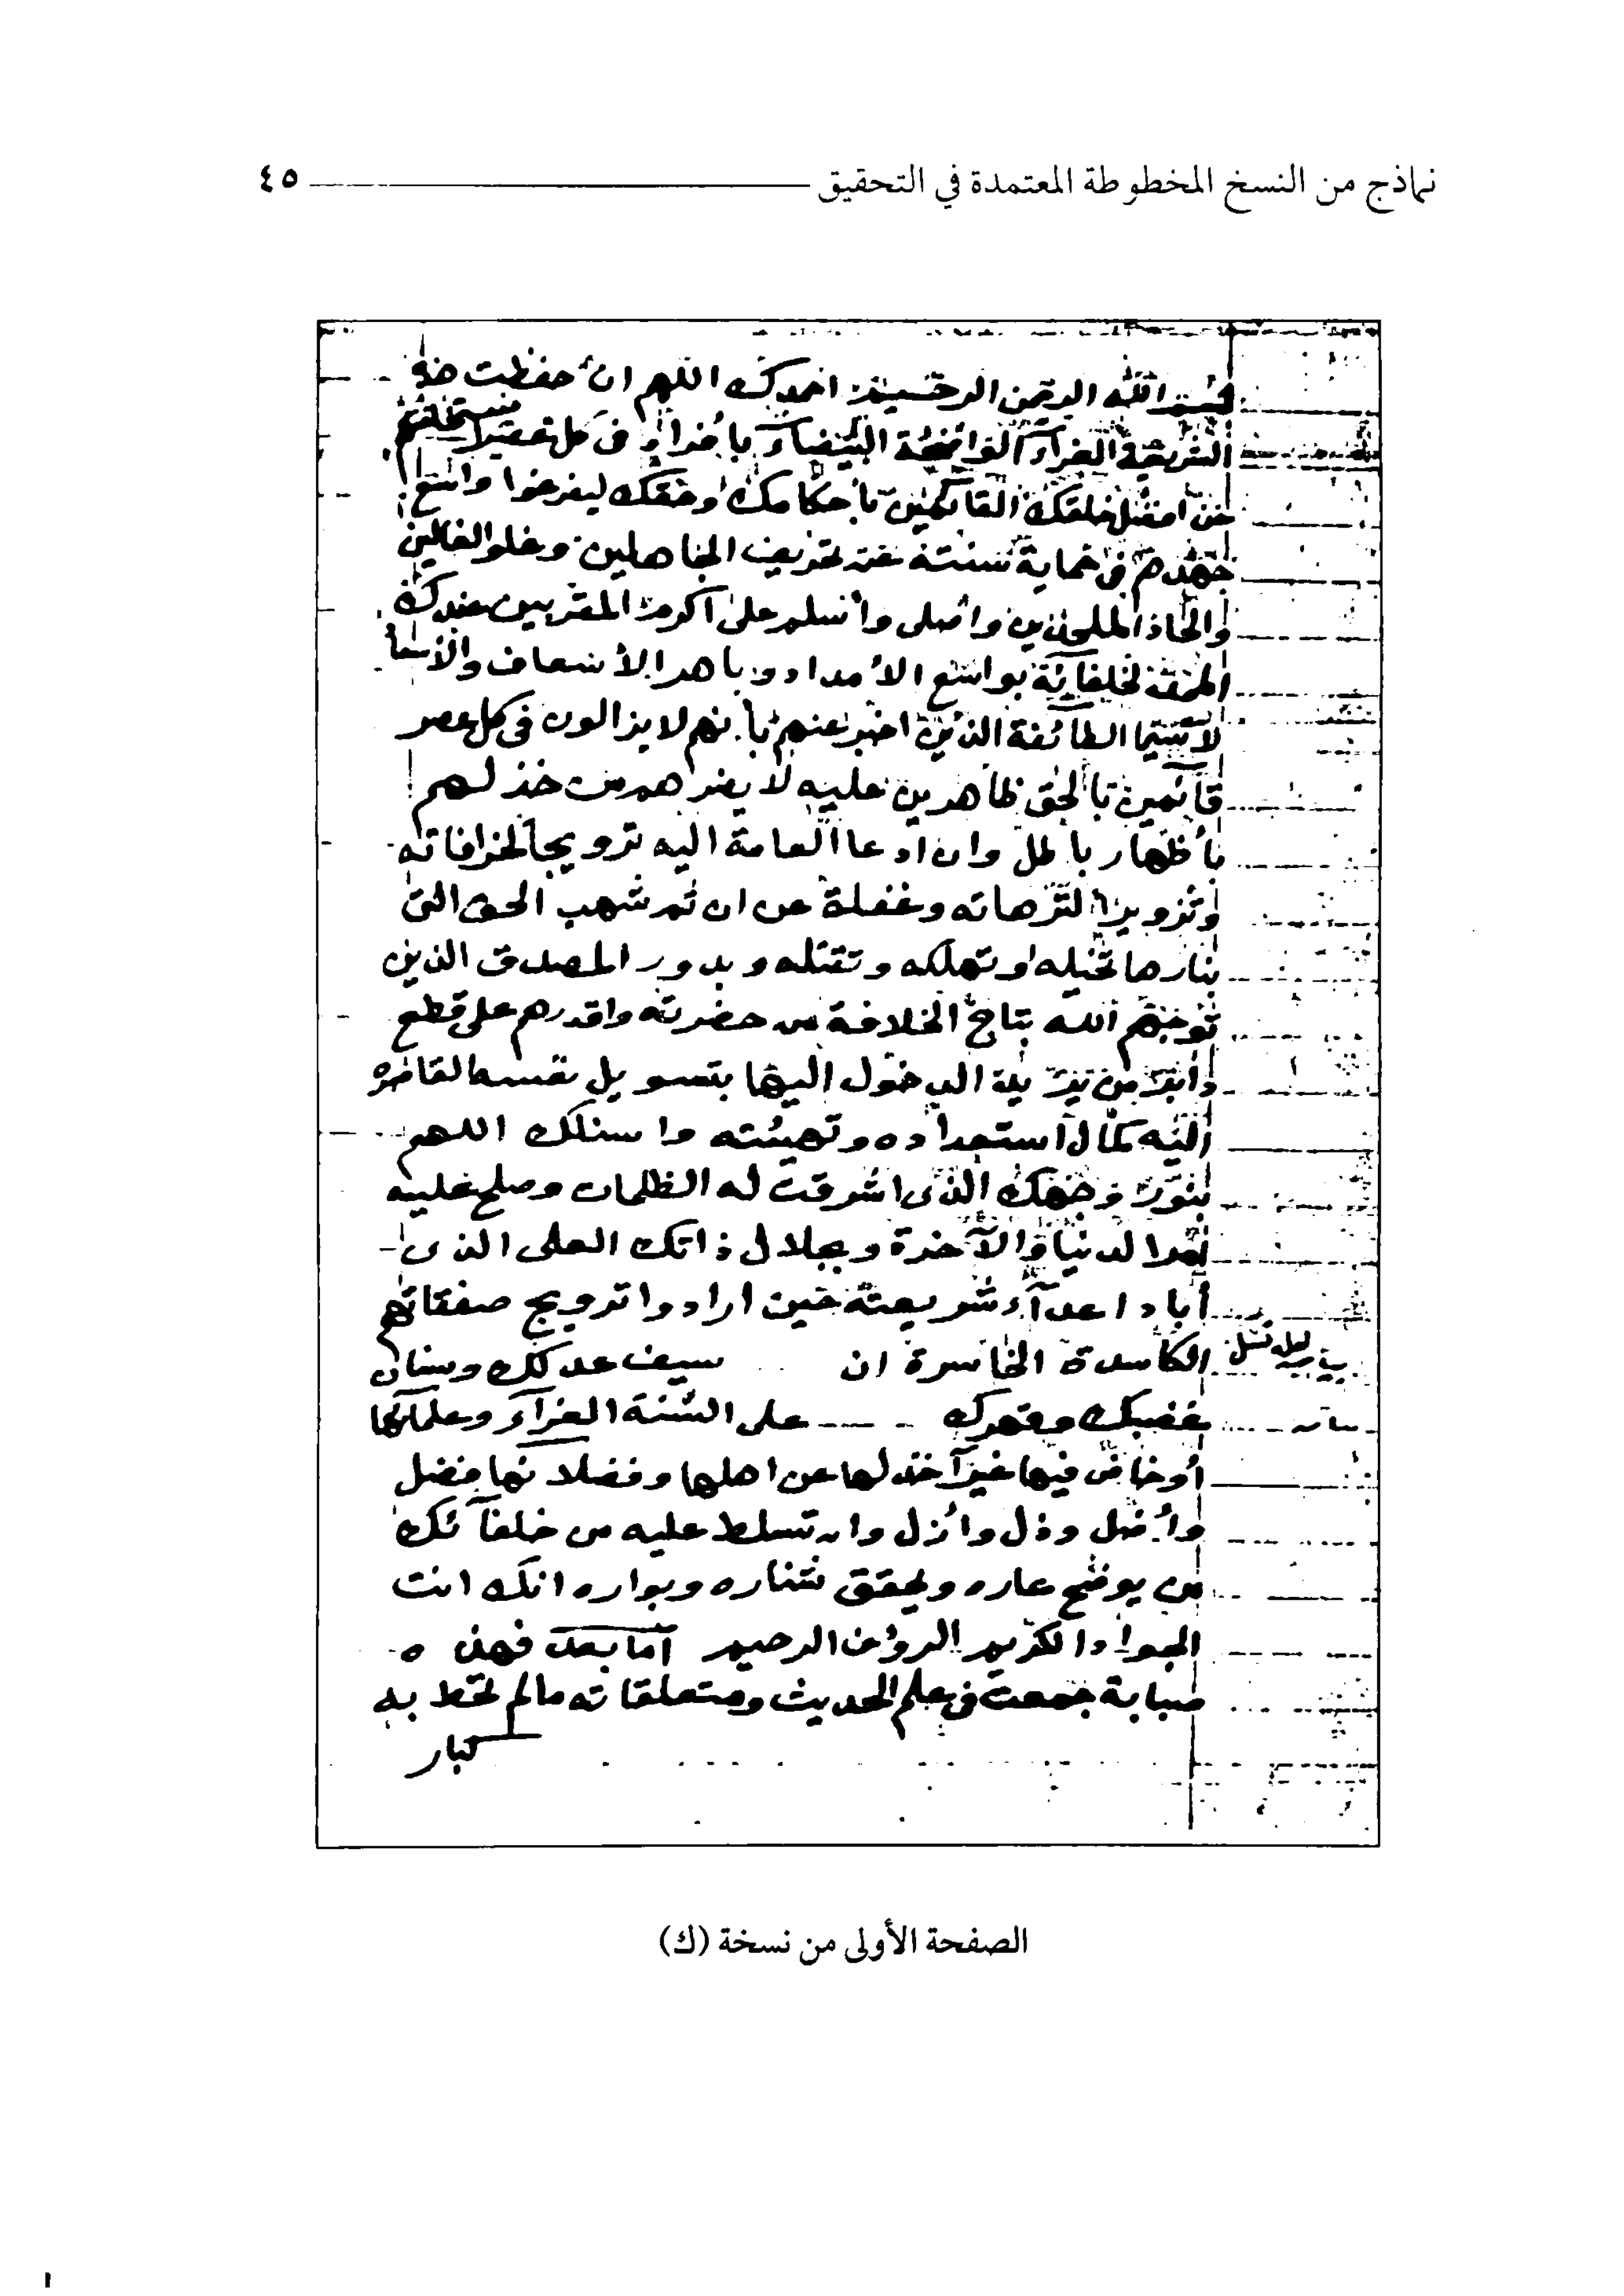 نماذج من النسخ المخطوطة المعتمدة في التحقيق ٤٥
بسم الله الرحمن الرحيم احمدك اللهم ان حفظت هذه
الشريعة الغراء الواضحة البيضاء في كل عصر
من افضل خلقك القائمين باحكامك وحقك ليفرغوا واسع
جهدهم في حماية سنته عن تحريف الجاهلين وغلو الغالين
والحاد الملحدين واصلى وأسلم على اكرم المقربين عندك
الممد لخلفائه بواسع الأمداد وباهر الأسعاف والأسعا
لا سيما الطائفة الذين اخبر عنهم بأنهم لا يزالون في كل عصر
قائمين بالحق ظاهرين عليه لا يضرهم من خذلهم
بأظهار باطل وان ادعا العامة اليه ترويجا لخرافاته
وتزويرا لترهاته وغفلة عن ان ثم شهب الحق التى
بنارها تحيله او تهلكه وتقتله وبدور الصدق الذين
توجهم الله بتاج الخلافة من حضرته واقدرهم على قطع
دابر من يريد الدخول اليها بتسويل نفسه القاصره
اليه كمال استعداده وتهيئته واسئلك اللهم
بنور وجهك الذى اشرقت له الظلمات وصلح عليه
امر الدنيا والآخرة وبجلال ذاتك العلى الذى
أباد اعدآء شريعته حين ارادوا ترويج صفقاتهم
الكاسدة الخاسرة ان سيف عدلك وسنان
غضبك وقهرك على السنة الغرآء وعلمائها
أو خاض فيها غير آخذ لها عن اهلها وفضلائها فضل
وأضل وذل وأزل وان تسلط عليه من خلفآئك
من يوضح عاره ويحقق شناره وبواره انك انت
الجواد الكريم الرؤف الرحيم اما بعد فهذه
صبابة جمعت في علم الحديث ومتعلقاته مالم تحط به
كبار
الصفحة الأولى من نسخة (ك)